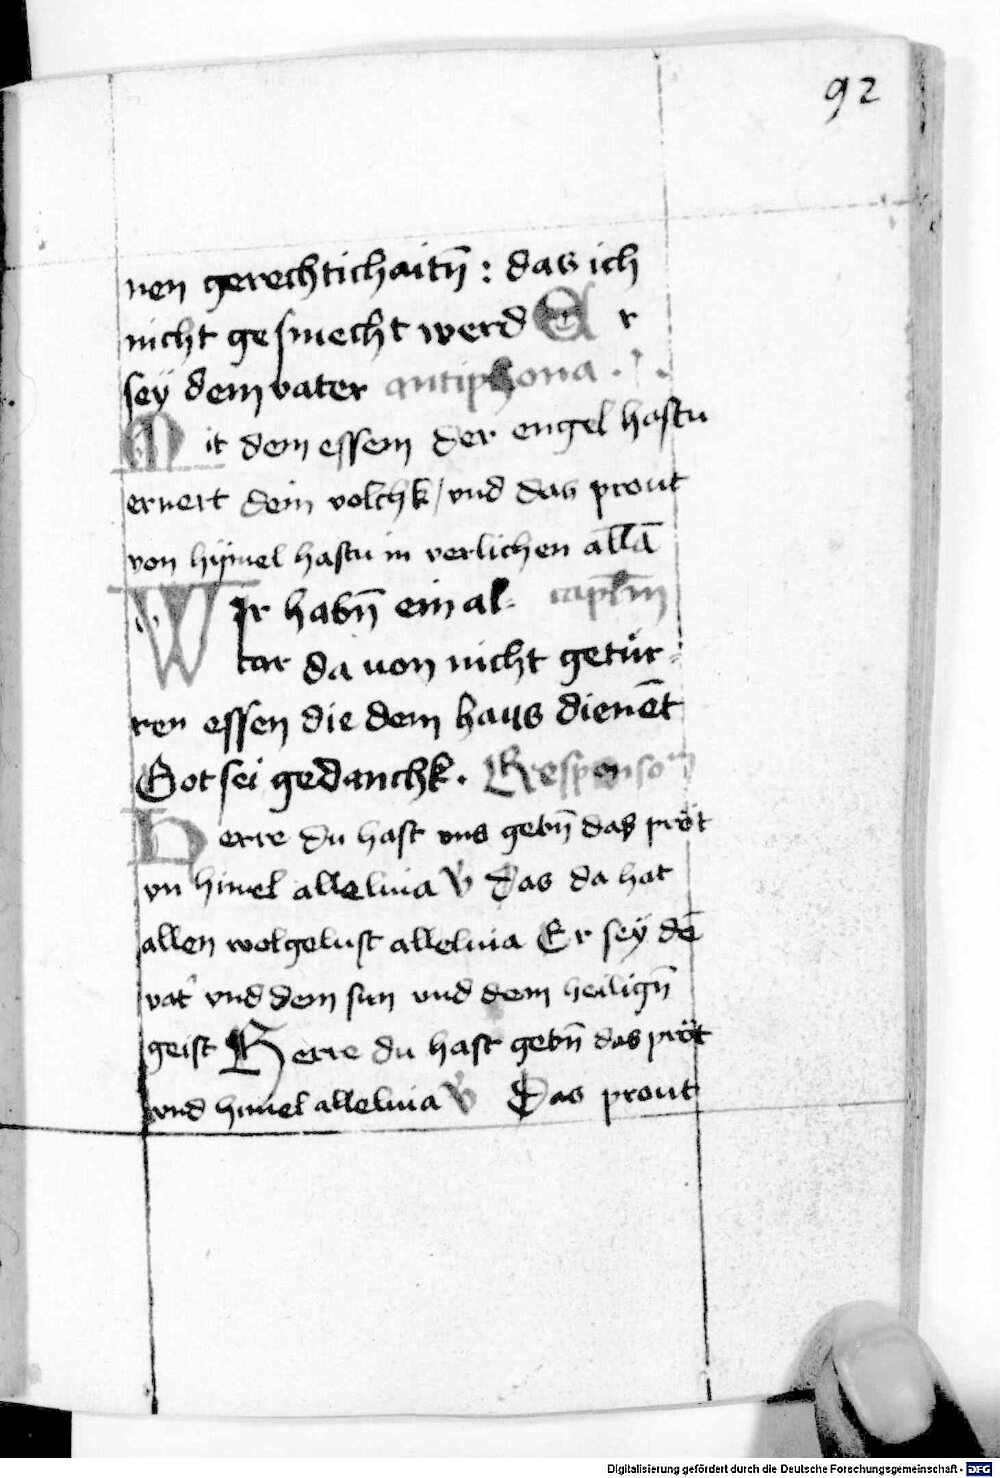 92
nen gerechtichaitn̄ : das ich
nicht gesmecht werd E r
sey̎ dem vater antiphona .
Mit dem essem der engel hastu
ernert dein volchk / vnd das prout
von hy̎mel hastu in verlichen all̄ā
Wir habn̄ ein al= capl̄m
tar da uon nicht getür=
ren essen die dem haus dienēt
Got sei gedanchk . Responso
Herre du hast uns gebn̄ das pröt
vn himel alleluia V Das da hat
allen wolgelust alleluia Er sey̎ dē
vat' vnd dem sun vnd dem heilign̄
geist Herre du hast gebn̄ das pröt
vnd himel alleluia V Das prout
Digitalisierung gefördert durch die Deutsche Forschungsgemeinschaft - DFG